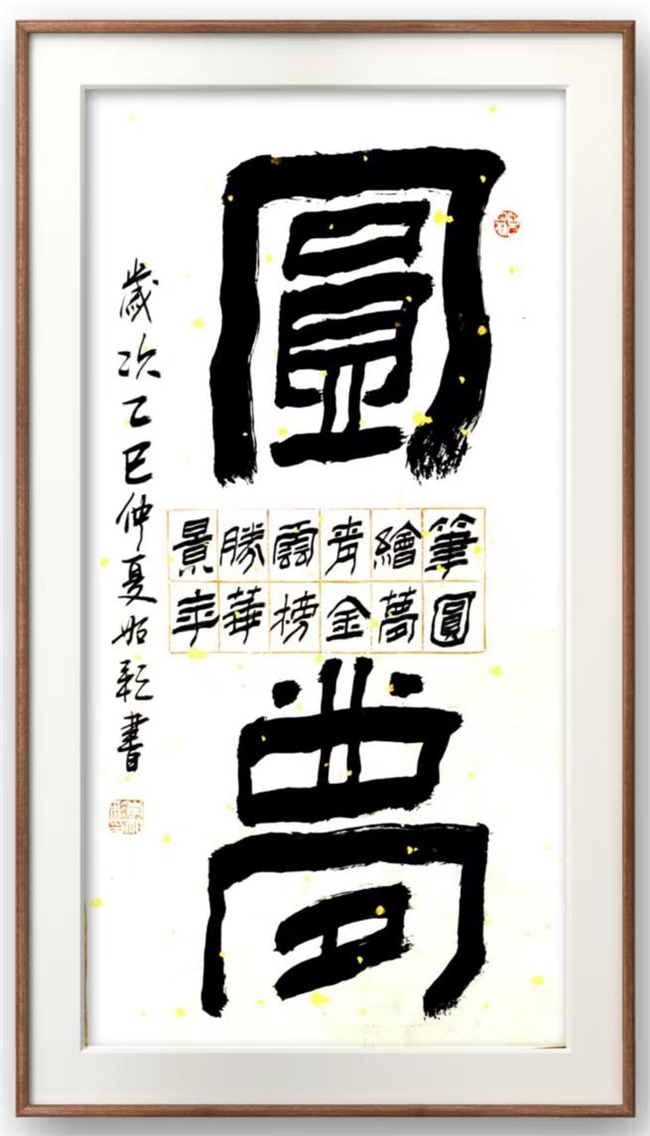 圓夢
筆繪青雲勝景
圓夢金榜華年
歲次乙巳仲夏書